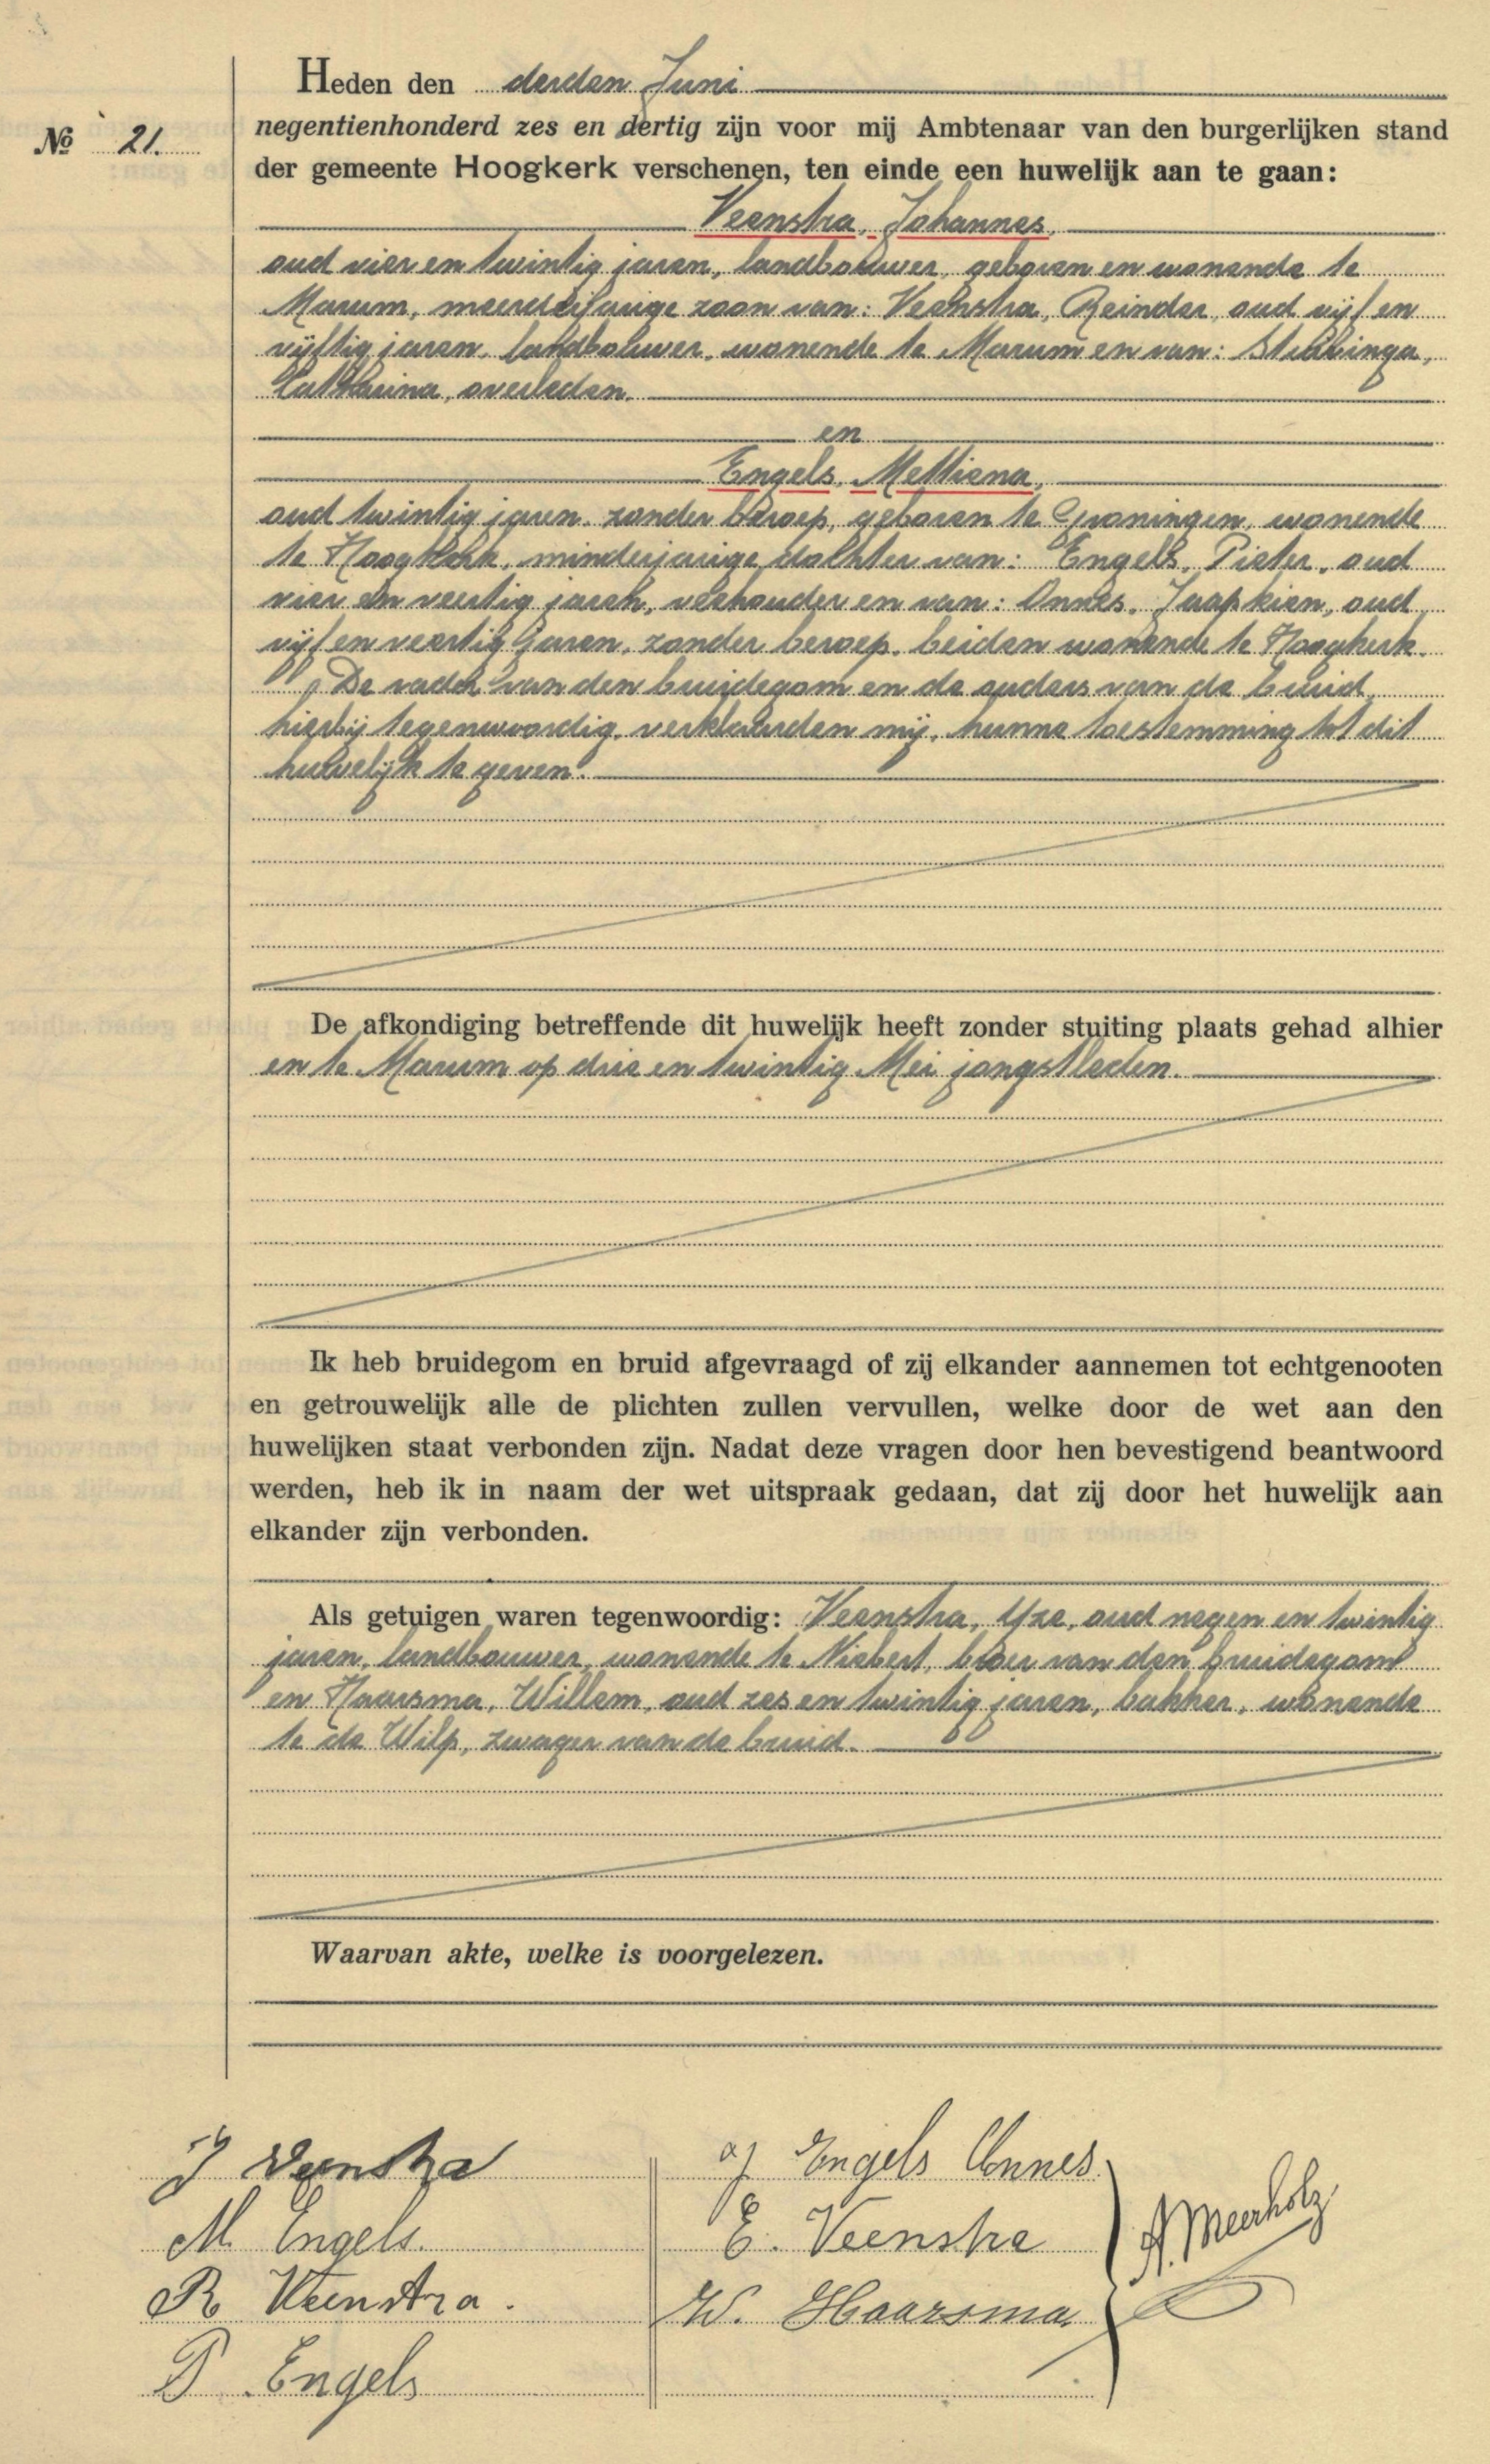 Heden den derden Juni
negentienhonderd zes en dertig zijn voor mij Ambtenaar van den burgerlijken stand
№ 21.
der gemeente Hoogkerk verschenen, ten einde een huwelijk aan te gaan:
Veenstra, Johannes,
oud vier en twintig jaren, landbouwer, geboren en wonende te
Marum, meerderjarige zoon van: Veenstra, Reinder, oud vijf en
vijftig jaren, landbouwer, wonende te Marum en van:
Catharina, overleden.
en
Engels, Mettiena,
oud twintig jaren, zonder beroep, geboren te Groningen, wonende
te Hoogkerk, minderjarige dochter van: Engels, Pieter, oud
vier en veertig jaren, veehouder en van: Onnes, Jaapkien, oud
vijf en veertig jaren, zonder beroep, beiden wonende te Hoogkerk.
De vader van den bruidegom en de ouders van de bruid,
hierbij tegenwoordig, verklaarden mij, hunne toestemming tot dit
huwelijk te geven.
De afkondiging betreffende dit huwelijk heeft zonder stuiting plaats gehad alhier
en te Marum op drie en twintig Mei jongstleden.
Ik heb bruidegom en bruid afgevraagd of zij elkander aannemen tot echtgenooten
en getrouwelijk alle de plichten zullen vervullen, welke door de wet aan den
huwelijken staat verbonden zijn. Nadat deze vragen door hen bevestigend beantwoord
werden, heb ik in naam der wet uitspraak gedaan, dat zij door het huwelijk aan
elkander zijn verbonden.
Als getuigen waren tegenwoordig: Veenstra, IJze, oud negen en twintig
jaren, landbouwer, wonende te Niebert, broer van den bruidegom
en Haarsma, Willem, oud zes en twintig jaren, bakker, wonende
te de Wilp, zwager van de bruid.
Waarvan akte, welke is voorgelezen.
J Veenstra
M. Engels.
R Veenstra.
P Engels
J Engels Onnes
E. Veenstra
W. Haarsma
A. Meerholz